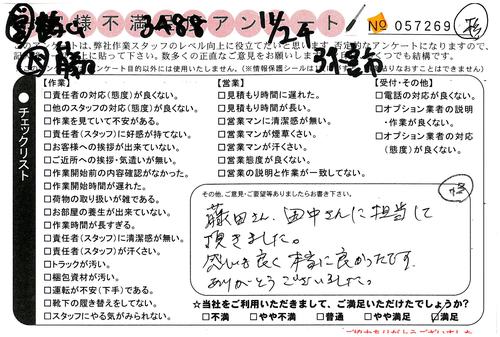 様不満足アンケート
3488 11/24
No 057269
のアンケートは、弊社作業スタッフのレベル向上に役立てたいと思います。否定的なアンケートになりますので、
に貼って下さい。数多くの正直なご意見をお願いします
くつでも結構です。
アンケート目的以外には使用いたしません。(※情報保護シールは
貼りなおすことはできません)
チェックリスト
【作業】
□責任者の対応(態度)が良くない。
□他のスタッフの対応(態度)が良くない。
□作業を見ていて不安がある。
□責任者(スタッフ)に好感が持てない。
□お客様への挨拶が出来ていない。
□ご近所への挨拶・気遣いが無い。
□作業開始前の内容確認がなかった。
□作業開始時間が遅れた。
□荷物の取り扱いが雑である。
□お部屋の養生が出来ていない。
□作業時間が長すぎる。
□責任者(スタッフ)に清潔感が無い。
□責任者(スタッフ)が汗くさい。
□トラックが汚い。
□梱包資材が汚い。
□運転が不安(下手)である。
□靴下の履き替えをしてない。
□スタッフにやる気がみられない。
【営業】
□見積もり時間に遅れた。
□見積もり時間が長い。
□営業マンに清潔感が無い。
□営業マンが煙草くさい。
□営業マンが汗くさい。
□営業態度が良くない。
□営業の説明と作業が一致してない。
【受付・その他】
□電話の対応が良くない。
□オプション業者の説明
・作業が良くない。
□オプション業者の対応
(態度)が良くない。
その他、ご意見・ご要望等ありましたらお書き下さい。
藤田さん、田中さんに担当して
頂きました。
感じも良く本当に良かったです。
ありがとうございました。
☆当社をご利用いただきまして、ご満足いただけたでしょうか?
□不満 □やや不満 □普通 □やや満足 ☑満足
ご協力ありがとうございました